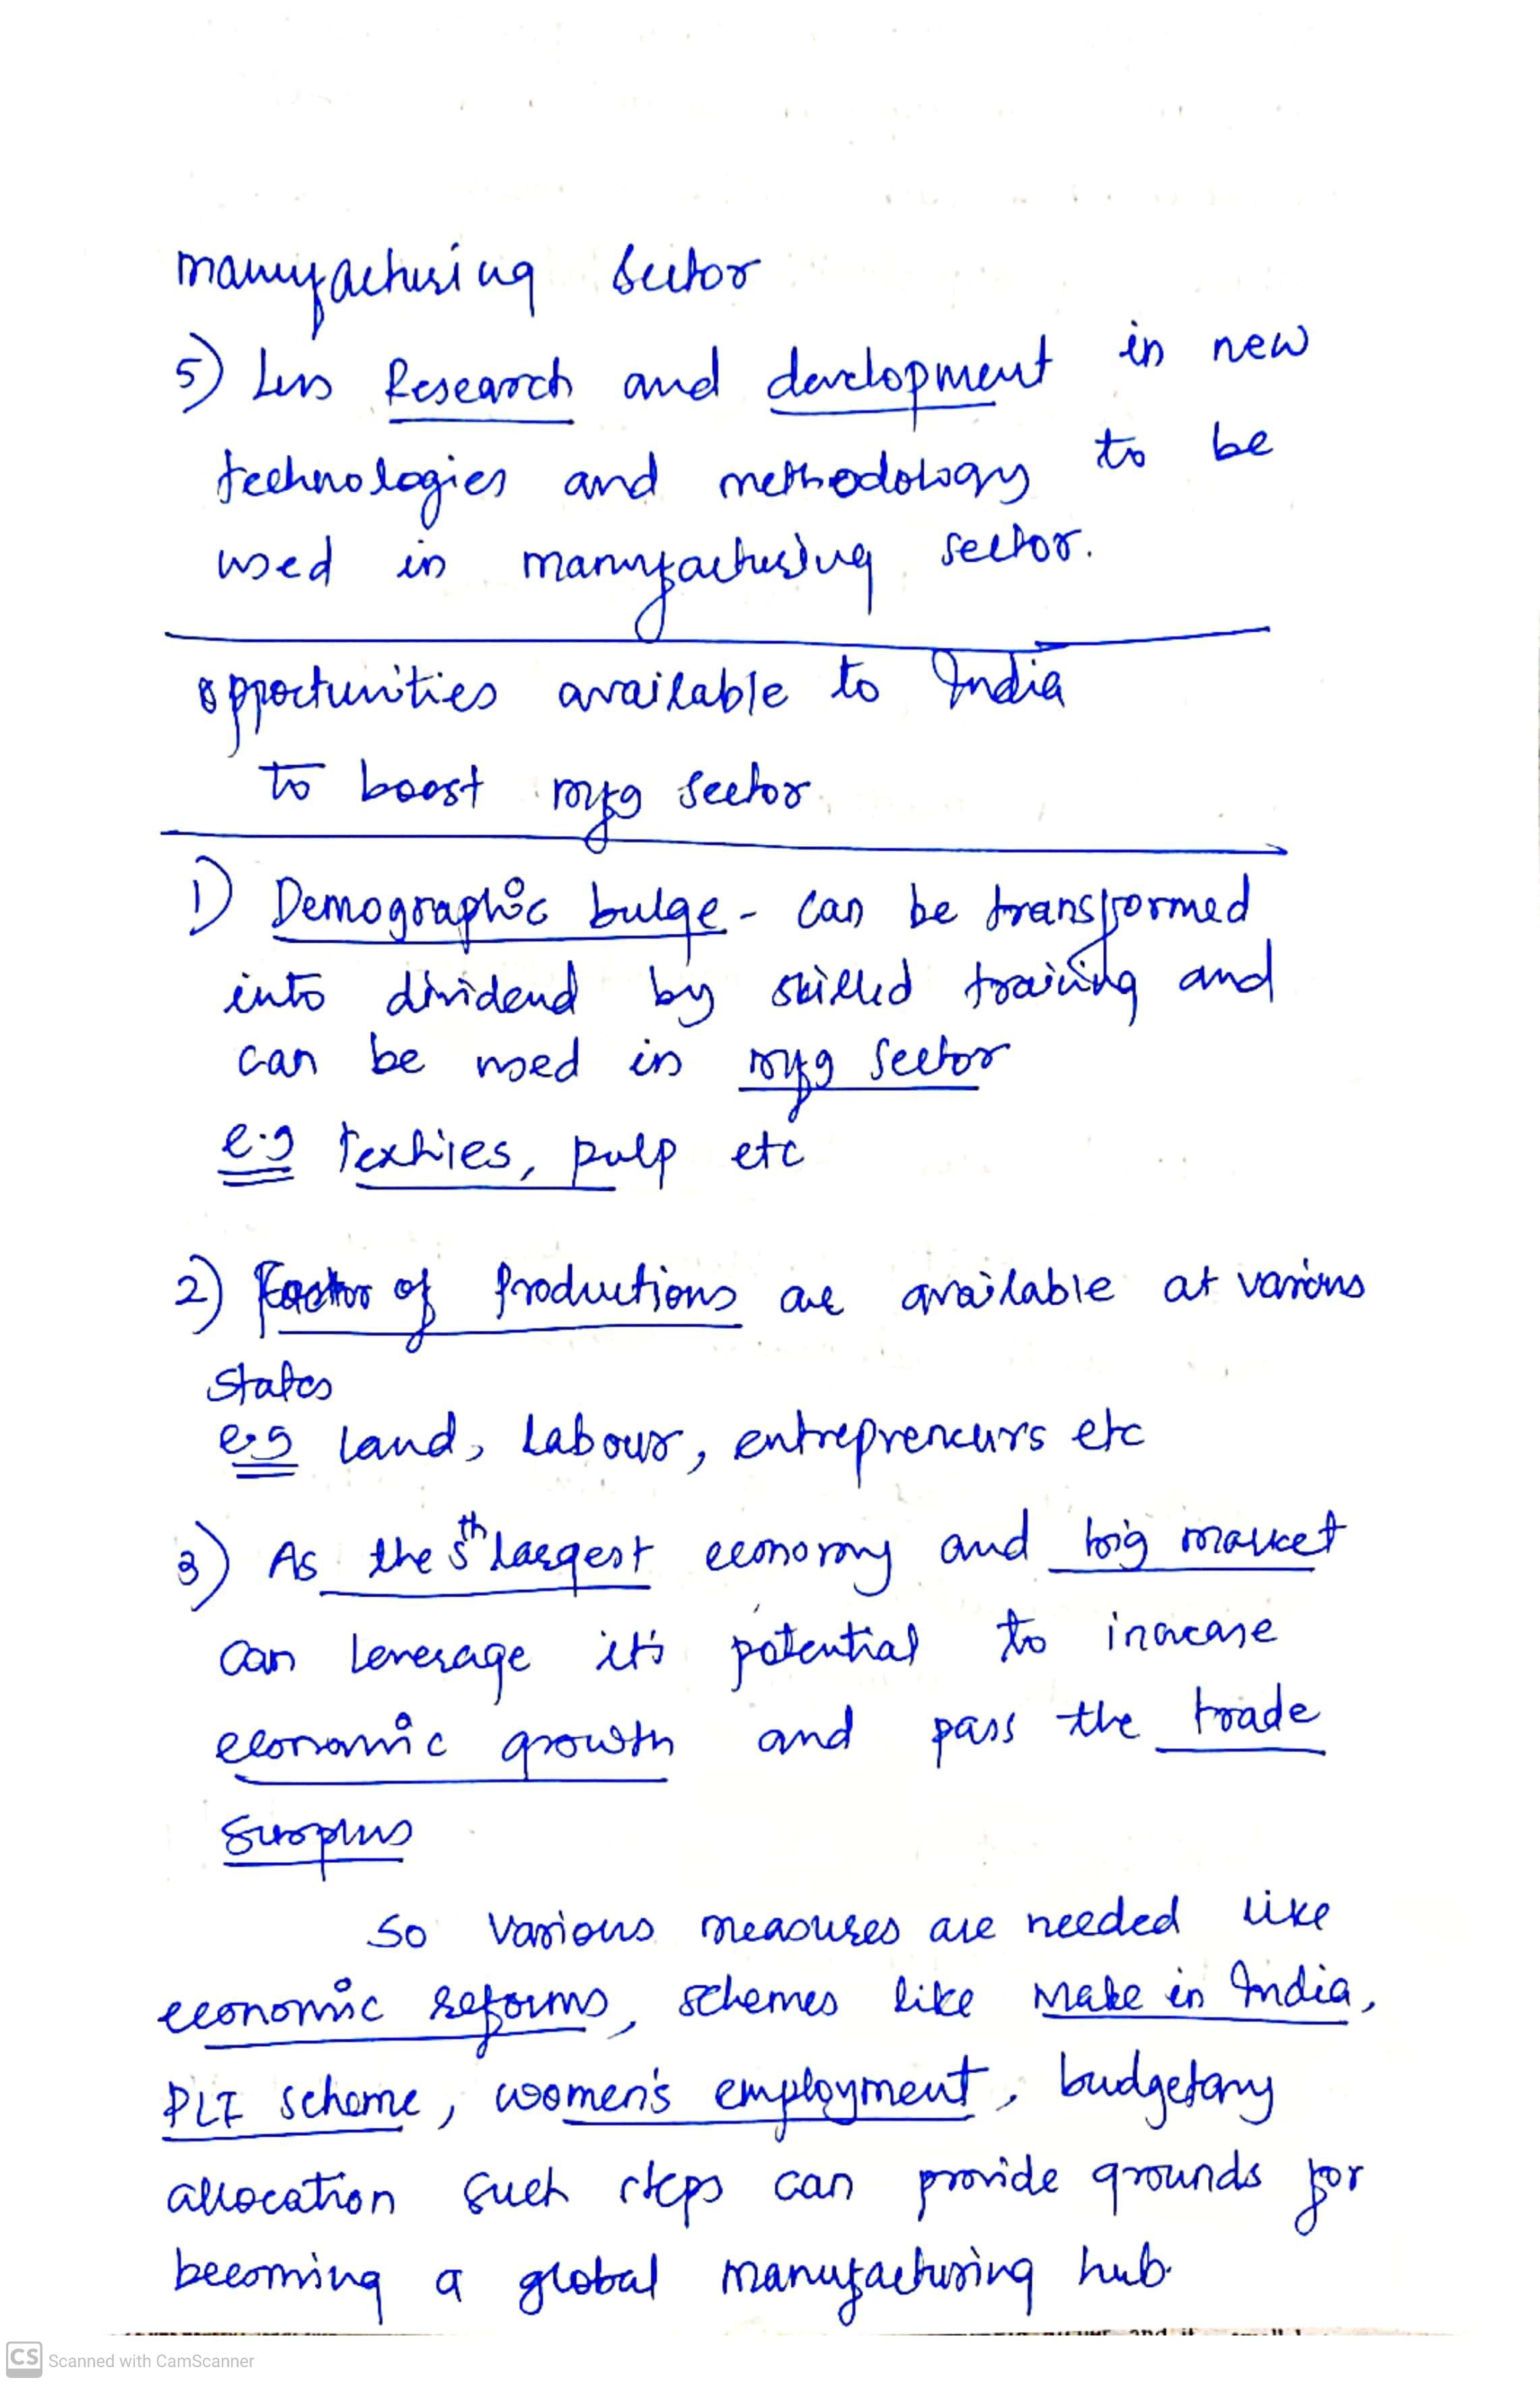 manufacturing sector
5) Less Research and development in new
technologies and methodology to be
used in manufacturing sector.
opportunities available to India
to boost mfg sector
1) Demographic bulge - can be transformed
into dividend by skilled training and
can be used in mfg sector
e.g Textiles, pulp etc
2) Factor of productions are available at various
states
e.g land, labour, entrepreneurs etc
3) As the 5th largest economy and big market
can leverage it's potential to increase
economic growth and pass the trade
surplus
So various measures are needed like
economic reforms, schemes like Make in India,
PLI scheme, women's employment, budgetary
allocation such steps can provide grounds for
becoming a global manufacturing hub.
CS Scanned with CamScanner